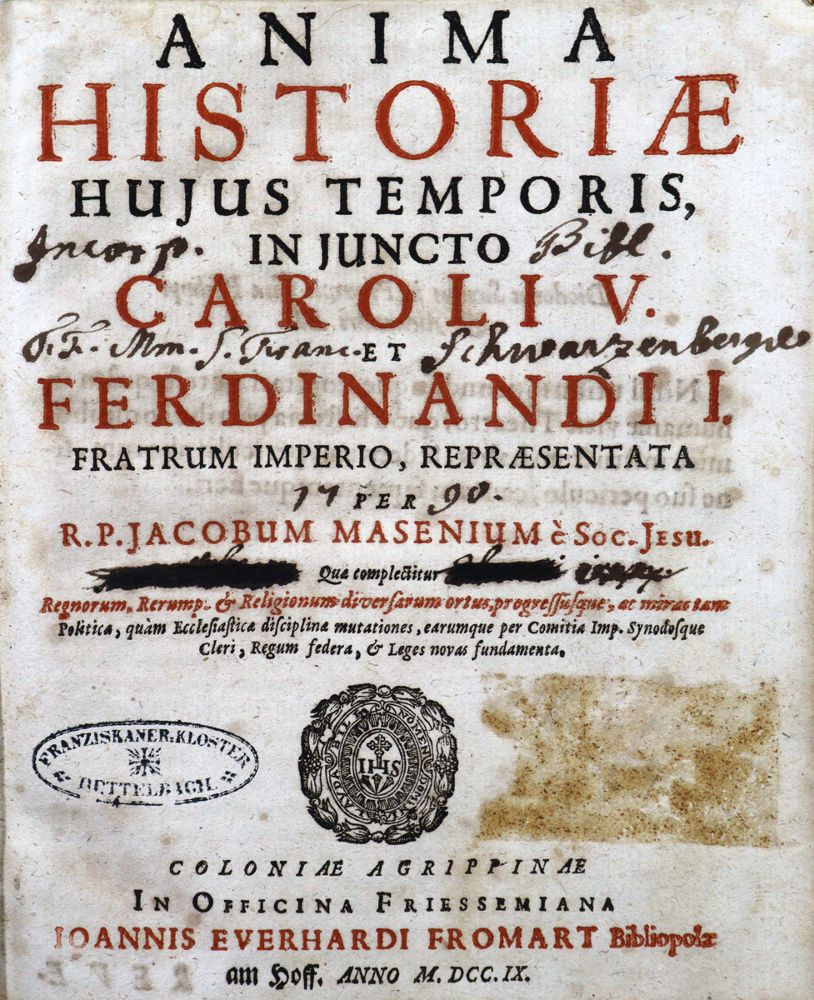 ANIMA
HISTORIÆ
HUJUS TEMPORIS,
Incorp. IN JUNCTO Bibl.
CAROLI V.
F.F. Mm. S. Franc. ET Schwarzenbergæ
FERDINANDI I.
FRATRUM IMPERIO, REPRÆSENTATA
17 PER 90.
R.P. JACOBUM MASENIUM è Soc. Jesu.
Qua complectitur
Regnorum, Rerump. & Religionum diversarum ortus, progressusque, ac miras tam
Politica, quàm Ecclesiastica disciplina mutationes, earumque per Comitia Imp. Synodosque
Cleri, Regum federa, & Leges novas fundamenta.
FRANZISKANER-KLOSTER
DETTELBACH.
IHS
COLONIAE AGRIPPINAE
IN OFFICINA FRIESSEMIANA
IOANNIS EVERHARDI FROMART Bibliopolæ
am Hoff. ANNO M. DCC. IX.